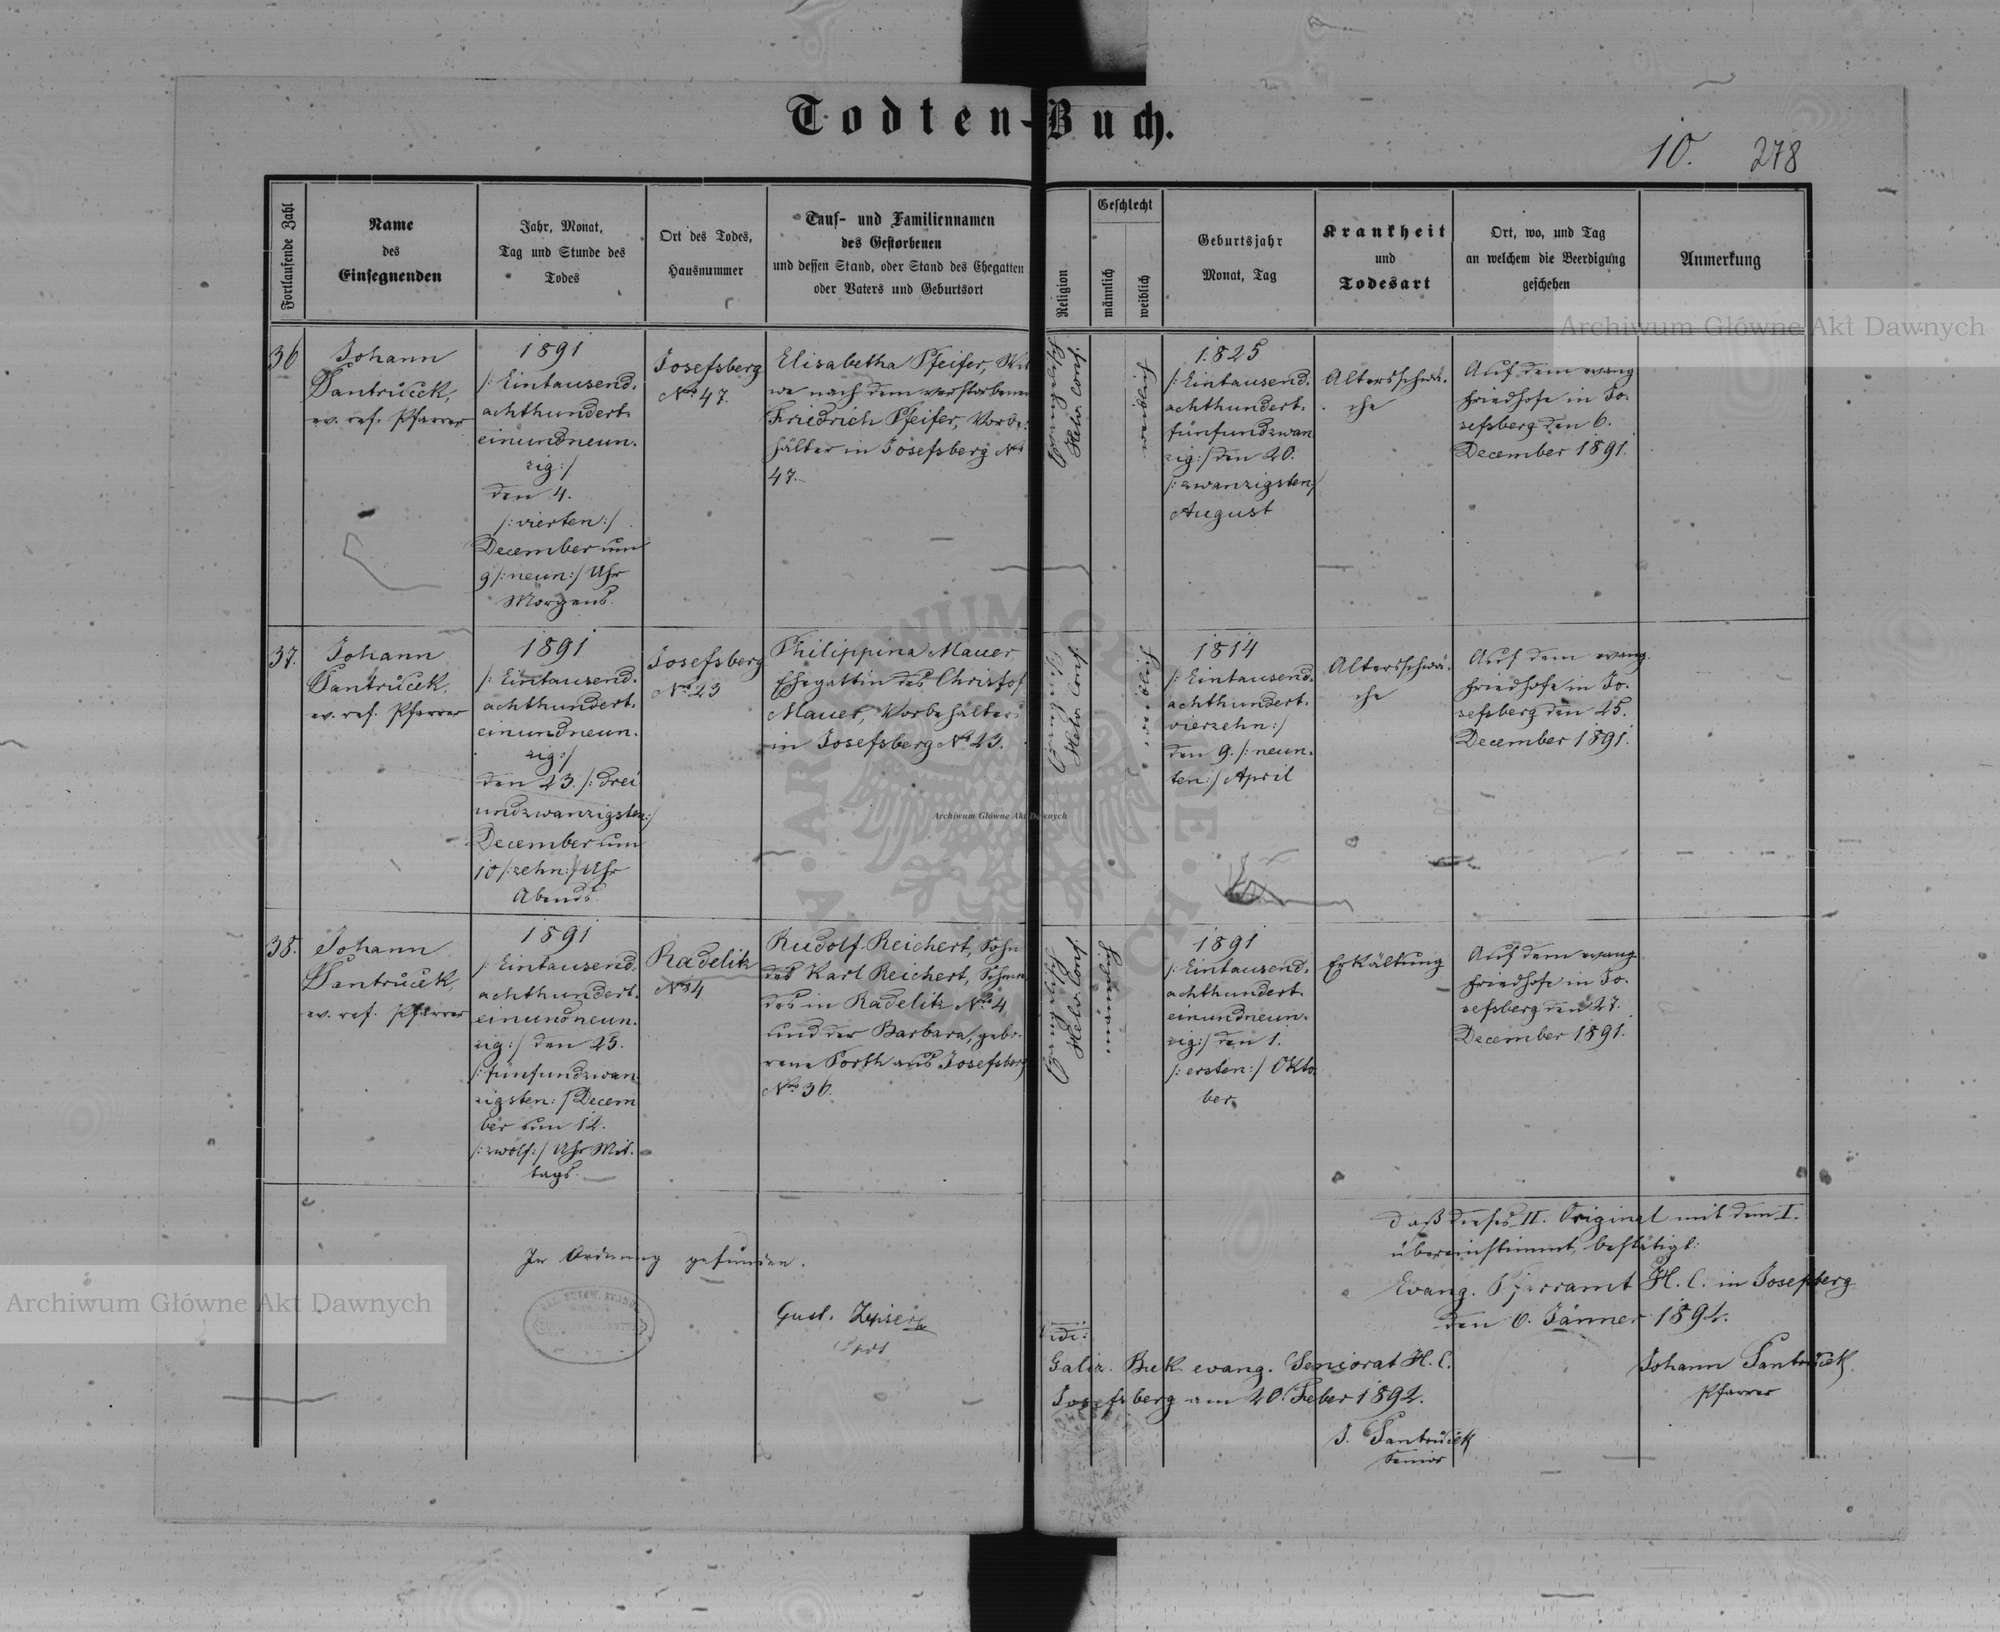 Todten-Buch.
10. 278
Fortlaufende Zahl
Name
des
Einsegnenden
Jahr, Monat,
Tag und Stunde des
Todes
Ort des Todes,
Hausnummer
Tauf- und Familiennamen
des Gestorbenen
und dessen Stand, oder Stand des Ehegatten
oder Vaters und Geburtsort
Religion
Geschlecht
männlich
weiblich
Geburtsjahr
Monat, Tag
Krankheit
und
Todesart
Ort, wo, und Tag
an welchem die Beerdigung
geschehen
Anmerkung
36
Johann
Santrůček,
ev. ref. Pfarrer
1891
/: Eintausend-
achthundert-
einundneun-
zig :/
den 4.
/: vierten :/
December um
9 /: neun :/ Uhr
Morgens.
Josefsberg
No 47.
Elisabetha Pfeifer, Wit
we nach dem verstorbenen
Friedrich Pfeifer, Vorbe-
hälter in Josefsberg No
47.
Evangelisch
Helv. Conf.
weiblich
1825
/: Eintausend-
achthundert-
fünfundzwan
zig :/ den 20.
/: zwanzigsten :/
August
Altersschwä-
che
Auf dem evang
Friedhofe in Jo-
sefsberg den 6.
December 1891.
37.
Johann
Santrůček,
ev. ref. Pfarrer
1891
/: Eintausend-
achthundert-
einundneun-
zig :/
den 23. /: drei
undzwanzigsten :/
December um
10 /: zehn :/ Uhr
Abends.
Josefsberg
No 23
Philippina Mauer,
Ehegattin des Christof
Mauer, Vorbehälters
in Josefsberg No 23.
Evangelisch
Helv. Conf.
weiblich
1814
/: Eintausend-
achthundert-
vierzehn :/
den 9. /: neun-
ten :/ April
Altersschwä-
che
Auf dem evang.
Friedhofe in Jo-
sefsberg den 25.
December 1891.
38.
Johann
Santrůček,
ev. ref. Pfarrer
1891
/: Eintausend-
achthundert-
einundneun-
zig :/ den 25.
/: fünfundzwan
zigsten :/ Decem
ber um 12.
/: zwölf :/ Uhr Mit-
tags.
Radelitz
No 4
Rudolf Reichert, Sohn
des Karl Reichert,
des in Radelitz No 4
und der Barbara, gebo-
rene Forth aus Josefsberg
No 36.
Evangelisch
Helv. Conf.
männlich
1891
/: Eintausend-
achthundert-
einundneun-
zig :/ den 1.
/: ersten :/ Okto
ber.
Erkältung
Auf dem evang
Friedhofe in Jo-
sefsberg den 27.
December 1891.
Daß dieses II. Original mit dem I.
übereinstimmt, bestätigt:
Evang. Pfarramt H. C. in Josefsberg
den 6. Jänner 1892.
Johann Santrůček
Pfarrer
In Ordnung gefunden.
Gust.
Vidi:
Galiz. Buk. evang. Seniorat H. C.
Josefsberg am 20. Feber 1892.
J. Santrůček
Senior
Archiwum Główne Akt Dawnych
Archiwum Główne Akt Dawnych
Archiwum Główne Akt Dawnych